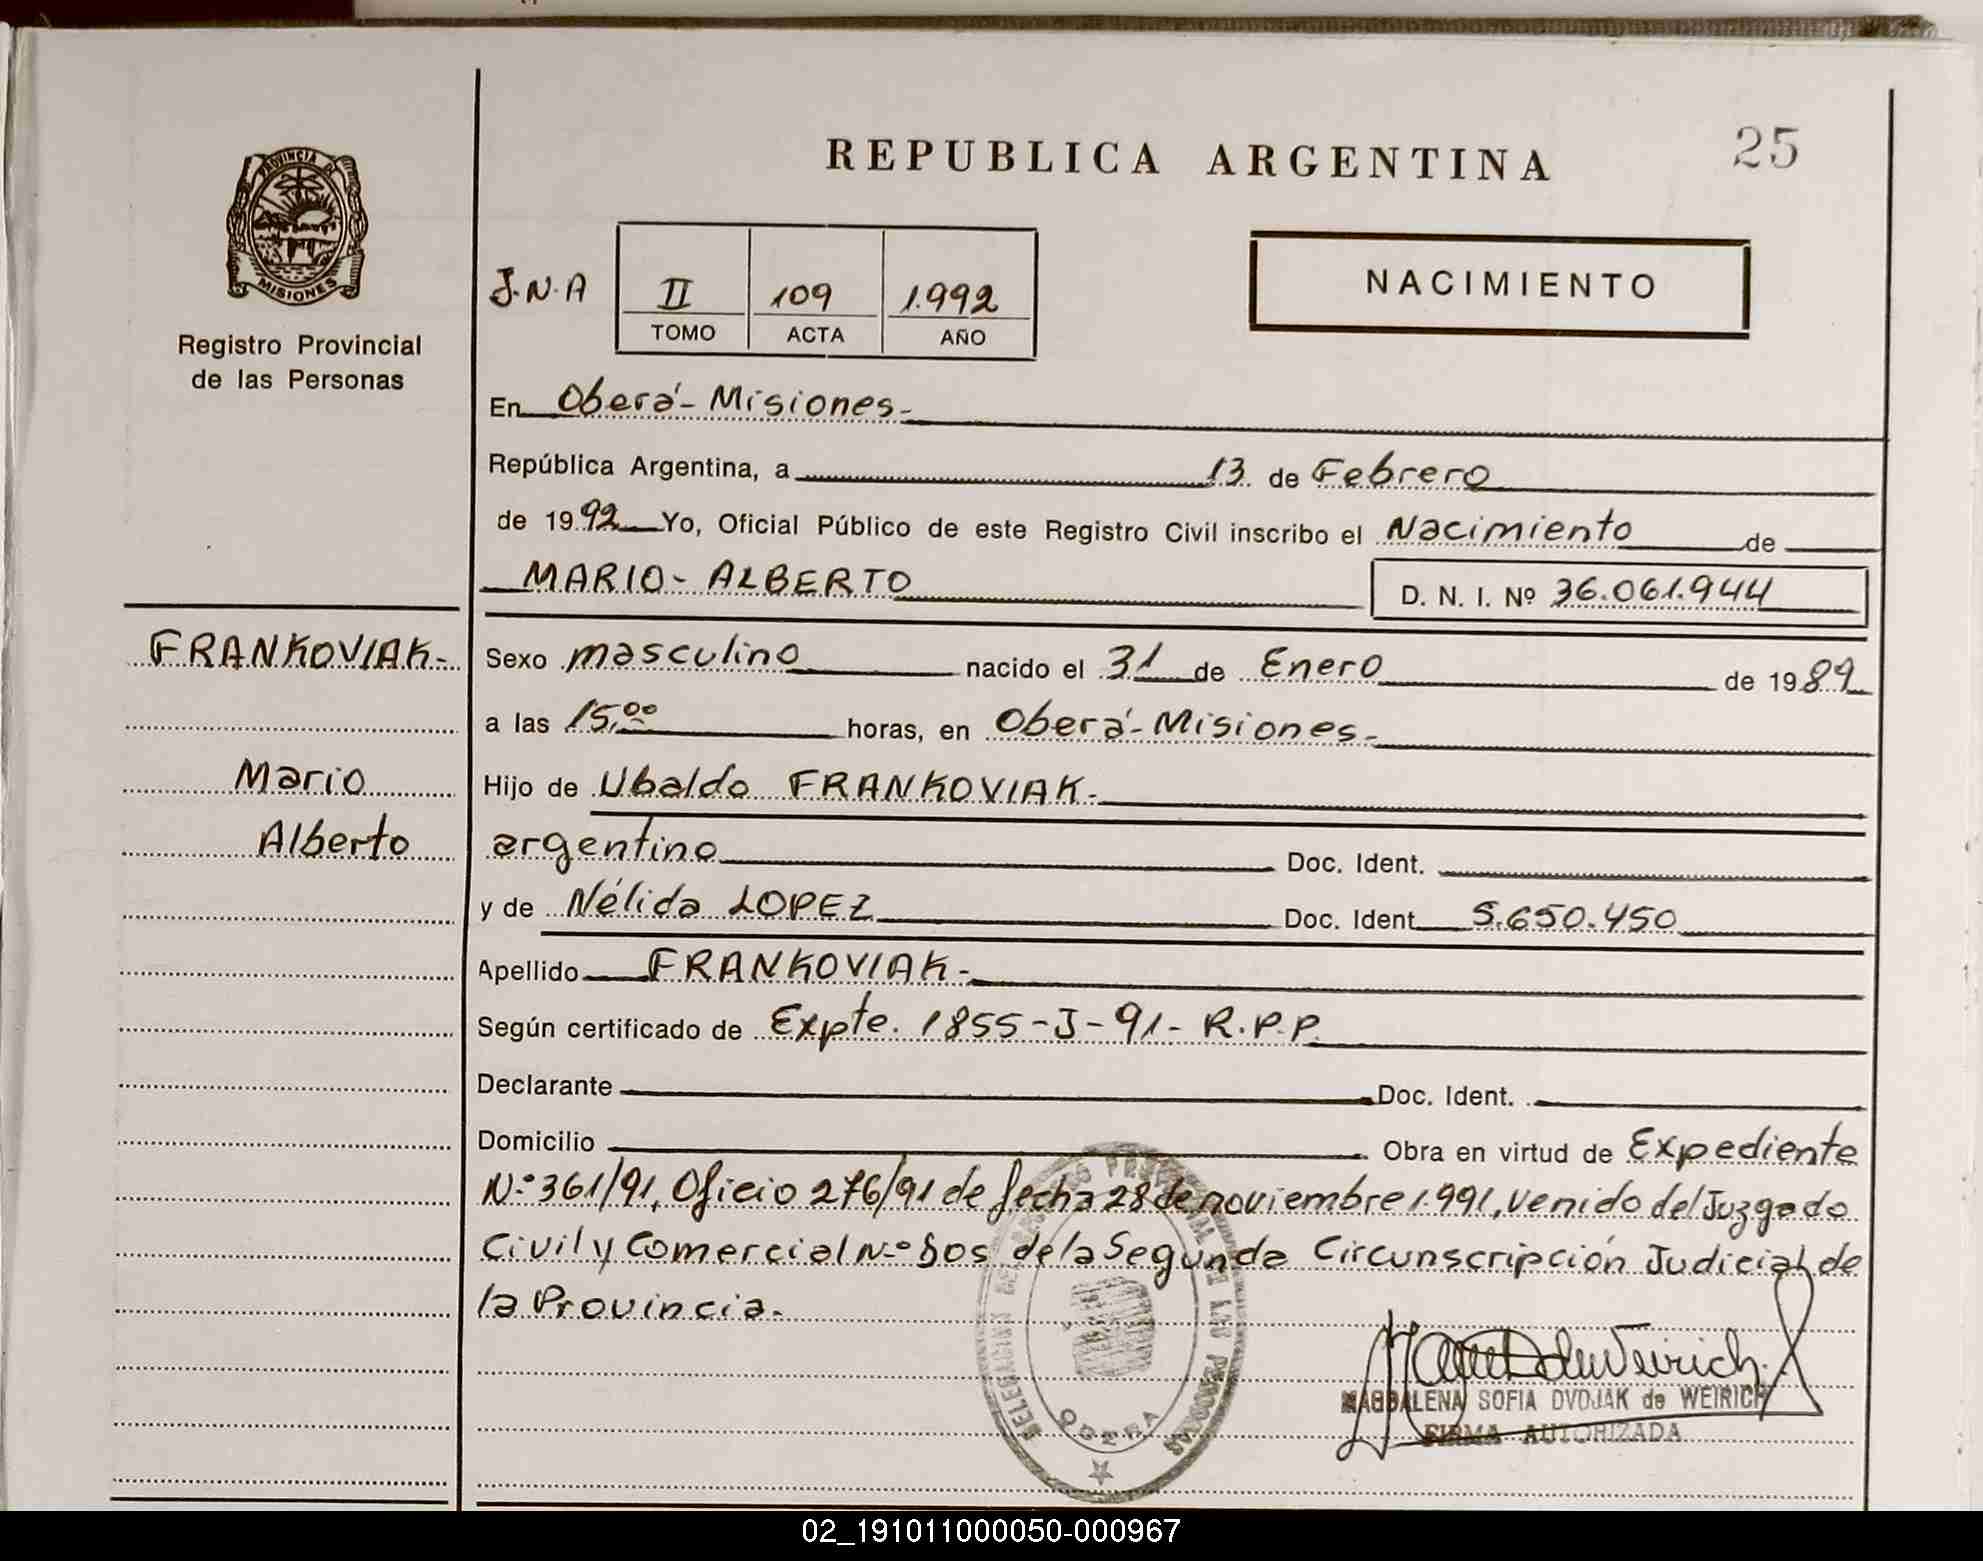 REPUBLICA ARGENTINA
25
PROVINCIA DE
MISIONES
Registro Provincial
de las Personas
J.N.A
II 109 1.992
TOMO ACTA AÑO
NACIMIENTO
En Oberá - Misiones.-
República Argentina, a 13 de Febrero
de 1992 Yo, Oficial Público de este Registro Civil inscribo el Nacimiento de
MARIO - ALBERTO
D. N. I. Nº 36.061.944
FRANKOVIAK.-
Mario
Alberto
Sexo masculino nacido el 31 de Enero de 1989
a las 15,00 horas, en Oberá - Misiones.-
Hijo de Ubaldo FRANKOVIAK.-
argentino Doc. Ident.
y de Nélida LOPEZ Doc. Ident. 5.650.450
Apellido FRANKOVIAK.-
Según certificado de Expte. 1855-J-91- R.P.P.
Declarante Doc. Ident.
Domicilio Obra en virtud de Expediente
N.º 361/91, Oficio 276/91 de fecha 28 de noviembre 1.991, venido del Juzgado
Civil y Comercial N.º Dos de la Segunda Circunscripción Judicial de
la Provincia.-
DELEGACION DEL REGISTRO PROVINCIAL DE LAS PERSONAS
OBERA
MAGDALENA SOFIA DVOJAK de WEIRICH
FIRMA AUTORIZADA
02_191011000050-000967